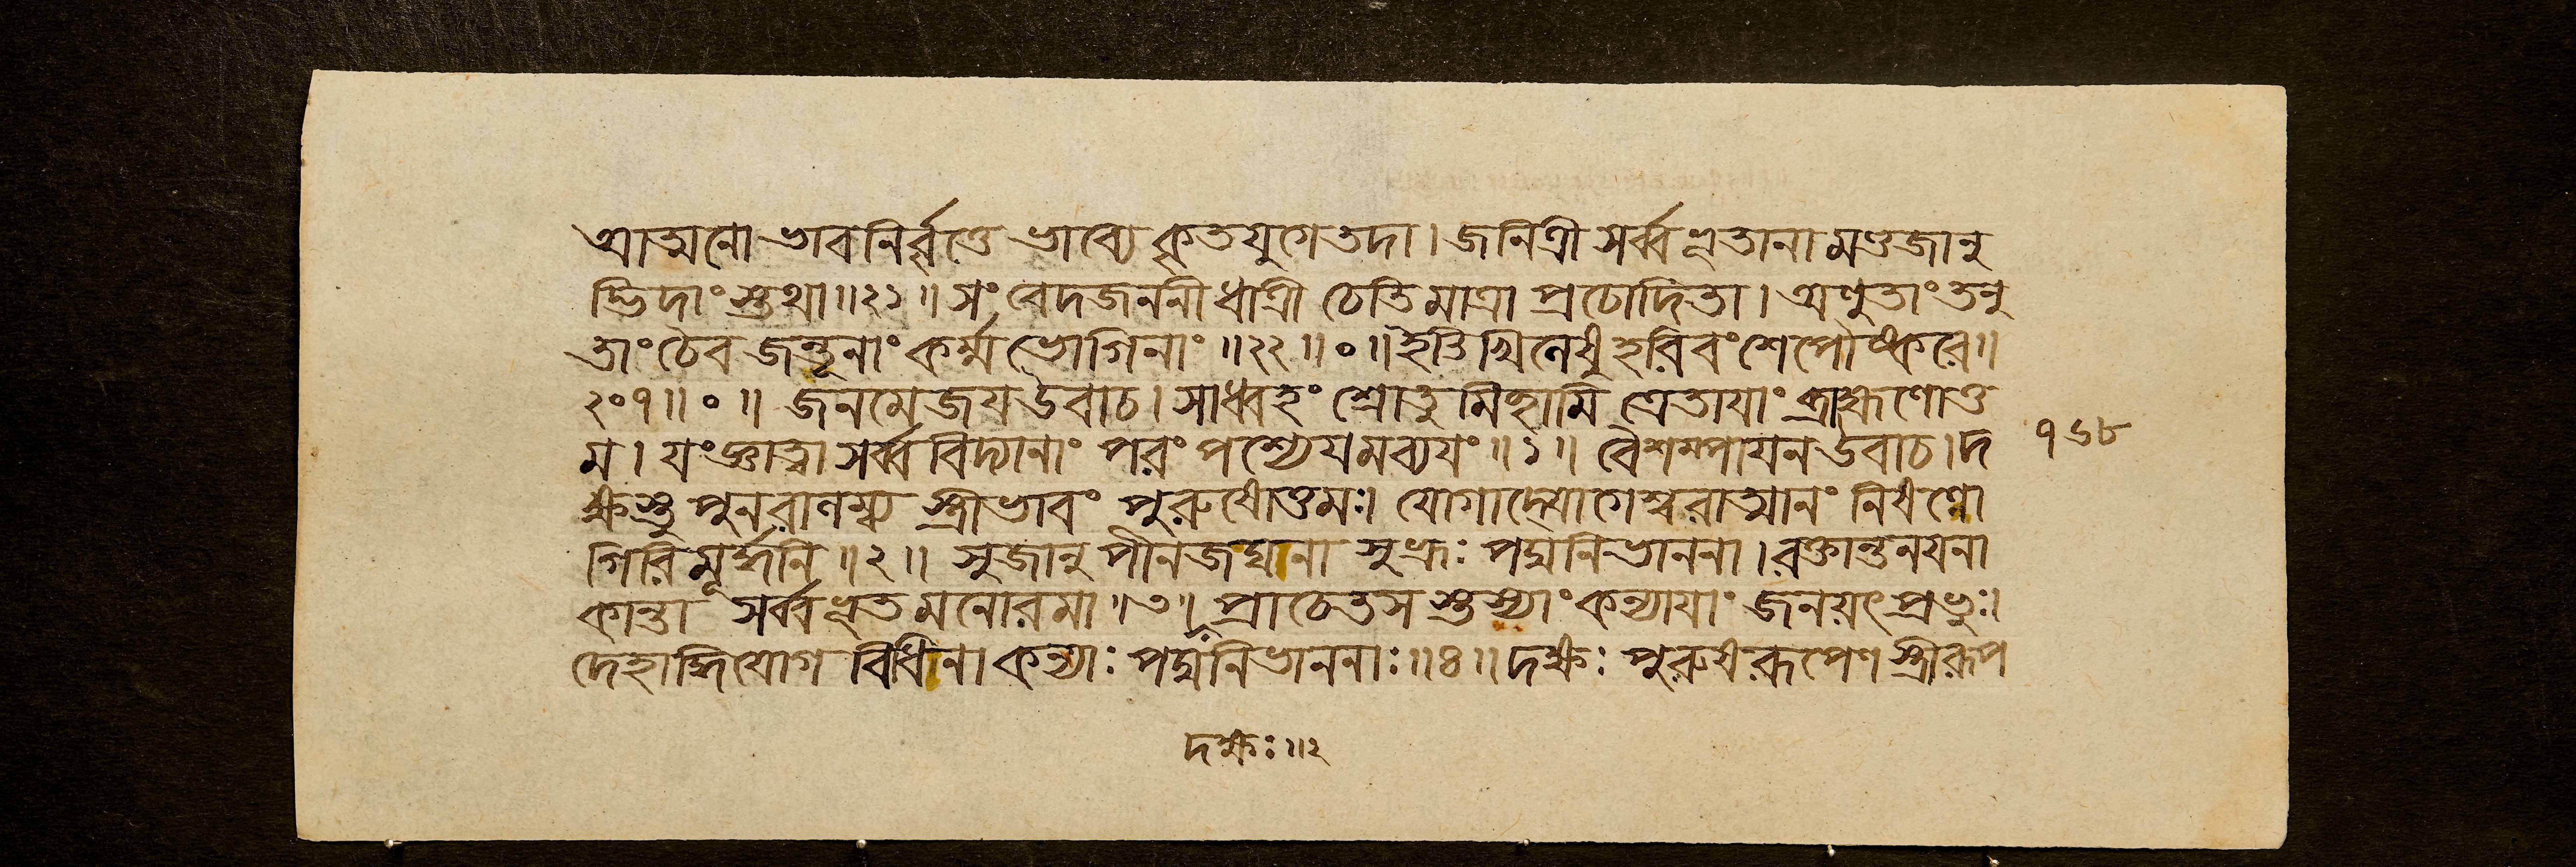 আত্মনো ভাবনির্ব্বৃত্তে ভাব্যে কৃতযুগে তদা। জনিত্রী সর্ব্বভূতানামণ্ডজানু
দ্ভিদাংস্তথা॥২১॥ সংবেদজননী ধাত্রী চেতি মাত্রা প্রচোদিতা। অণুতাং তনু
তাং চৈব জন্তূনাং কর্ম্মভোগিনাং॥২২॥০॥ইতি খিলেষু হরিবংশে পৌষ্করে॥
২০৭॥০॥ জনমেজয উবাচ। সাধ্বহং শ্রোতুমিচ্ছামি ত্রেতাযাং ব্রাহ্মণোত্ত
ম। যং জ্ঞাত্বা সর্ব্ববিদ্যানাং পরং পশ্যেযমব্যযং॥১॥ বৈশম্পাযন উবাচ। দ
১৬৮
ক্ষস্তু পুনরালম্ব্য স্ত্রীভাবং পুরুষোত্তমঃ। যোগাদ্যোগেশ্বরাত্মানং নিষণ্ণো
গিরিমূর্দ্ধনি॥২॥ সুজানু পীনজঘনা সুভ্রূঃ পদ্মনিভাননা। রক্তান্তনযনা
কান্তা সর্ব্বভূতমনোরমা॥৩॥ প্রাচেতসস্তস্যাং কন্যাযাং জনযৎ প্রভুঃ।
দেহার্দ্ধিযোগ বিধিনা কন্যাঃ পদ্মনিভাননাঃ॥৪॥ দক্ষঃ পুরুষরূপেণ স্ত্রীরূপ
দক্ষঃ॥২